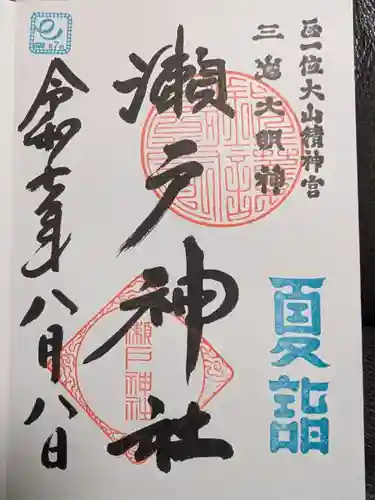 正一位大山積神宮
三島大明神
夏詣
瀬戸神社
瀬戸神社
令和七年八月八日